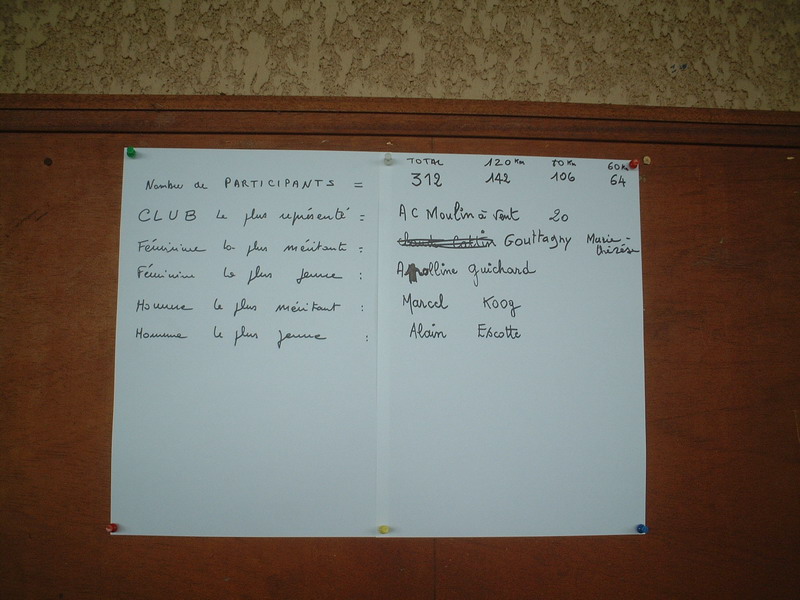 TOTAL 120 Km 80 Km 60 Km
Nombre de PARTICIPANTS = 312 142 106 64
CLUB le plus représenté = AC Moulin à Vent 20
Féminine la plus méritante : Gouttagny Marie-
thérèse
Féminine la plus jeune : Apolline Guichard
Homme le plus méritant : Marcel Koog
Homme le plus jeune : Alain Escotte